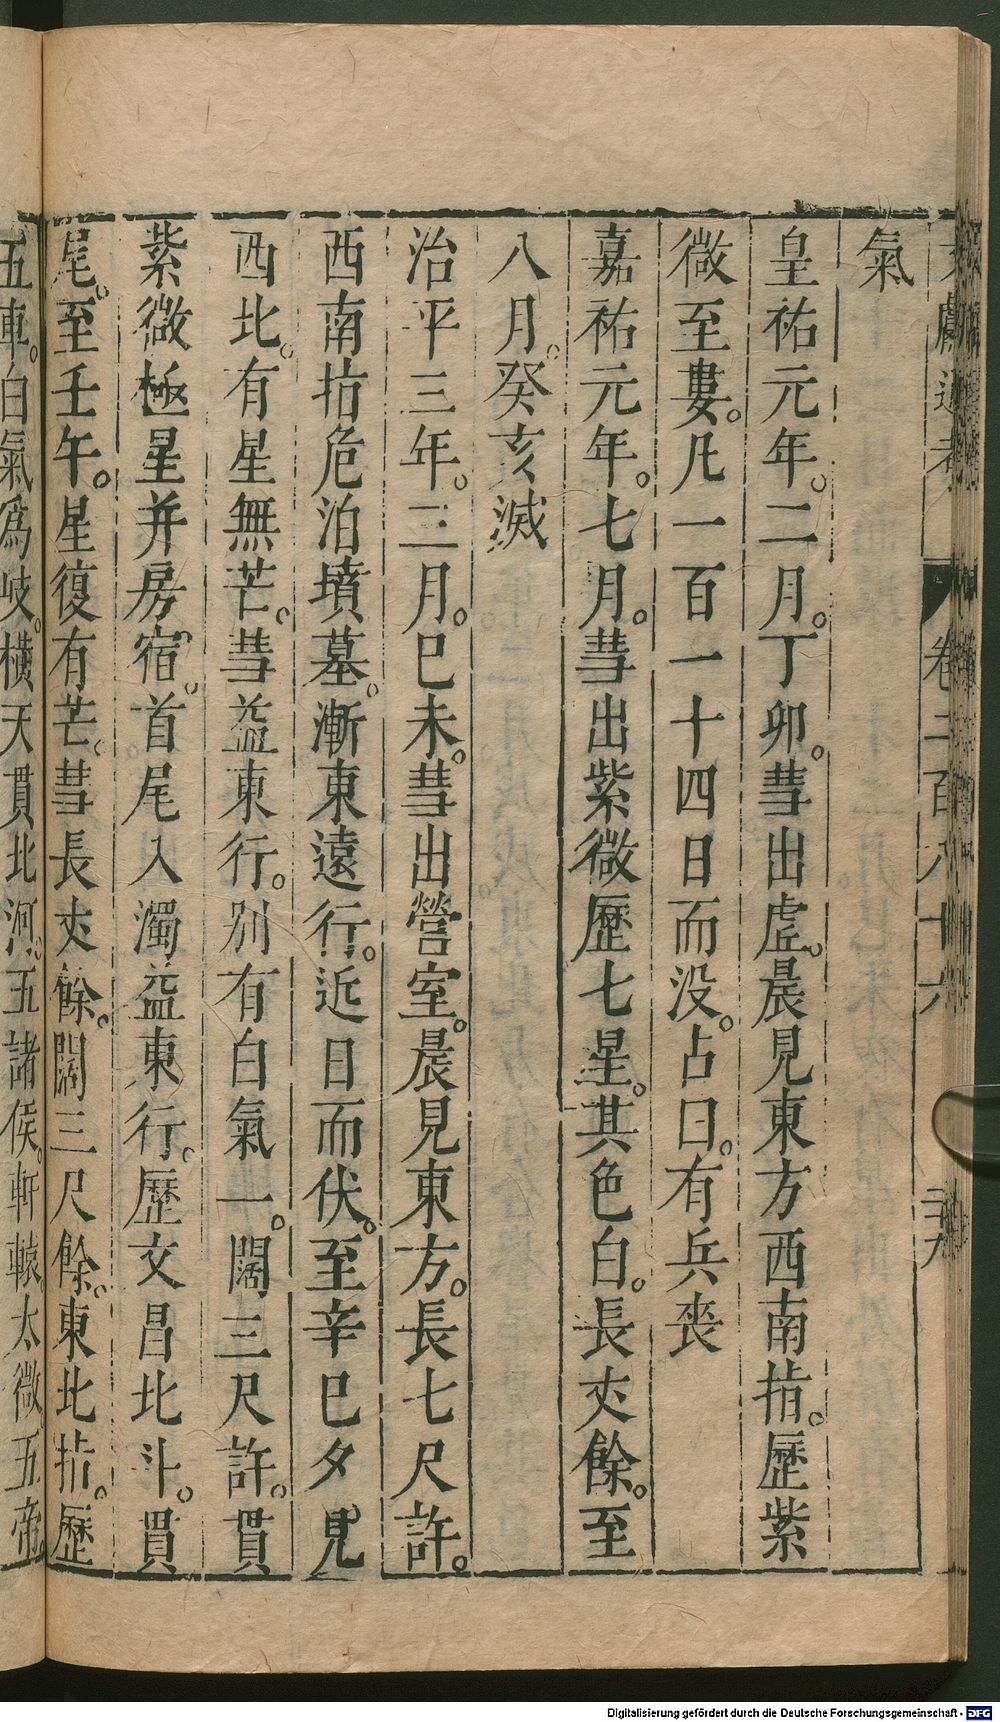 文獻通考 卷二百八十六 二十九
氣
皇祐元年。二月。丁卯。彗出虛。晨見東方西南指。歷紫
微至婁。凡一百一十四日而没。占曰。有兵喪
嘉祐元年。七月。彗出紫微歷七星。其色白。長丈餘。至
八月。癸亥滅
治平三年。三月。巳未。彗出營室。晨見東方。長七尺許。
西南指危洎墳墓。漸東遠行。近日而伏。至辛巳夕見
西北。有星無芒。彗益東行。別有白氣一。闊三尺許。貫
紫微極星并房宿。首尾入濁益東行。歷文昌北斗。貫
尾。至壬午。星復有芒。彗長丈餘。闊三尺餘。東北指。歷
五車。白氣爲岐。橫天貫北河。五諸侯。軒轅太微。五帝
Digitalisierung gefördert durch die Deutsche Forschungsgemeinschaft - DFG